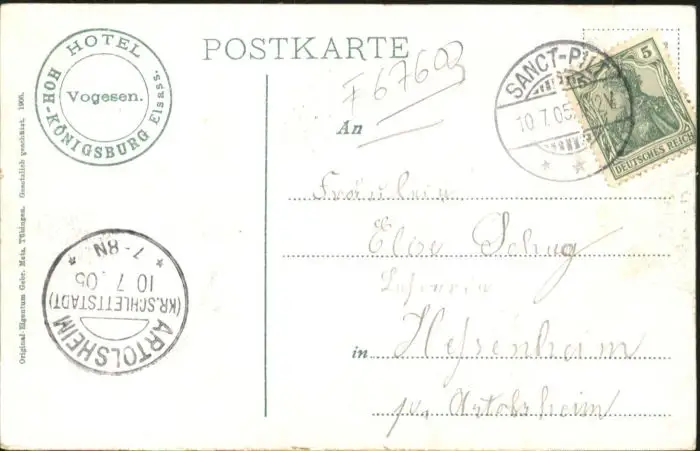 HOTEL
HOH-KÖNIGSBURG Elsass.
Vogesen.
POSTKARTE
F 67603
SANCT-PI
10.7.05
2V
5
DEUTSCHES REICH
An
Fräulein
Elise Schug
Lehrerin
in Hessenheim
pr. Artolsheim
ARTOLSHEIM
(KR.SCHLETTSTADT)
10 7 05
* 7-8N *
Original-Eigentum Gebr. Metz, Tübingen. Gesetzlich geschützt. 1905.